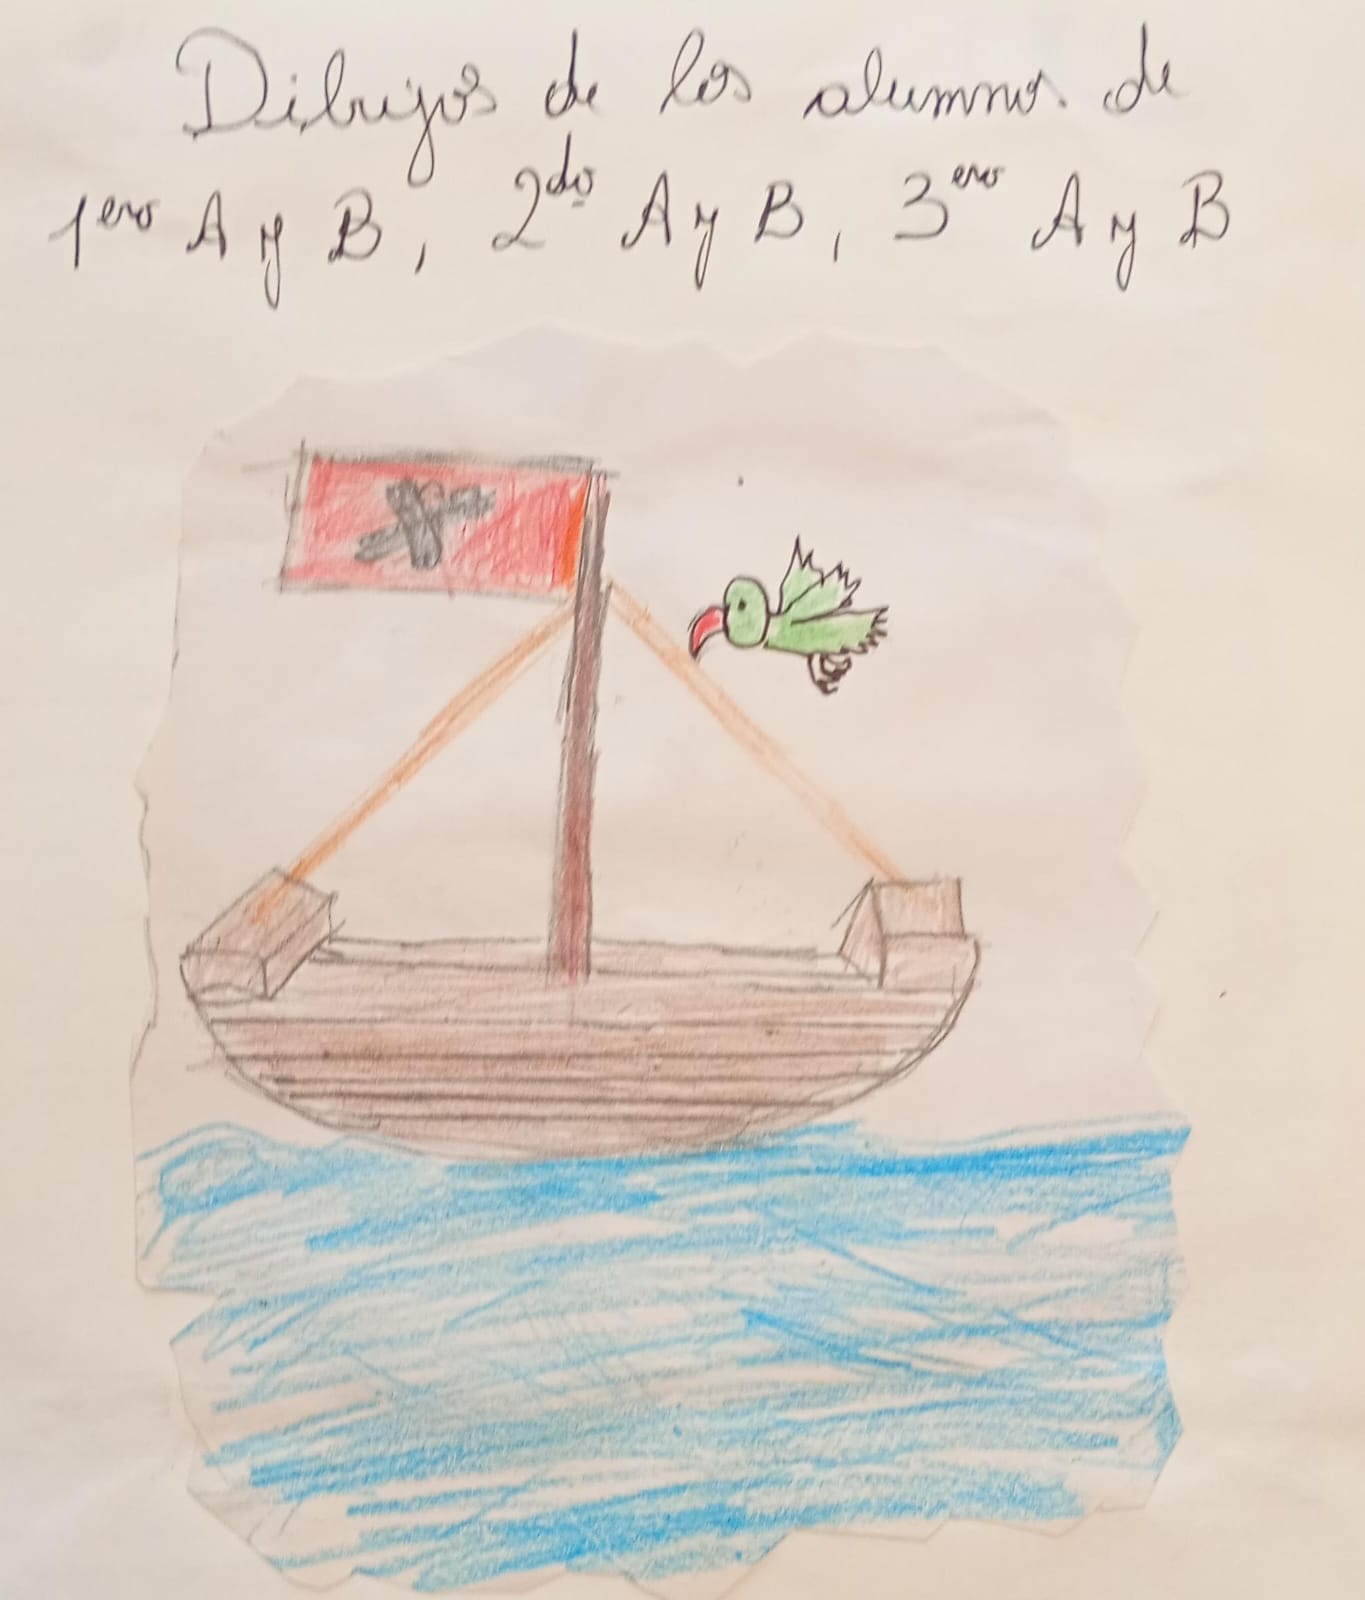 Dibujos de los alumnos de
1ero A y B, 2do A y B, 3ero A y B